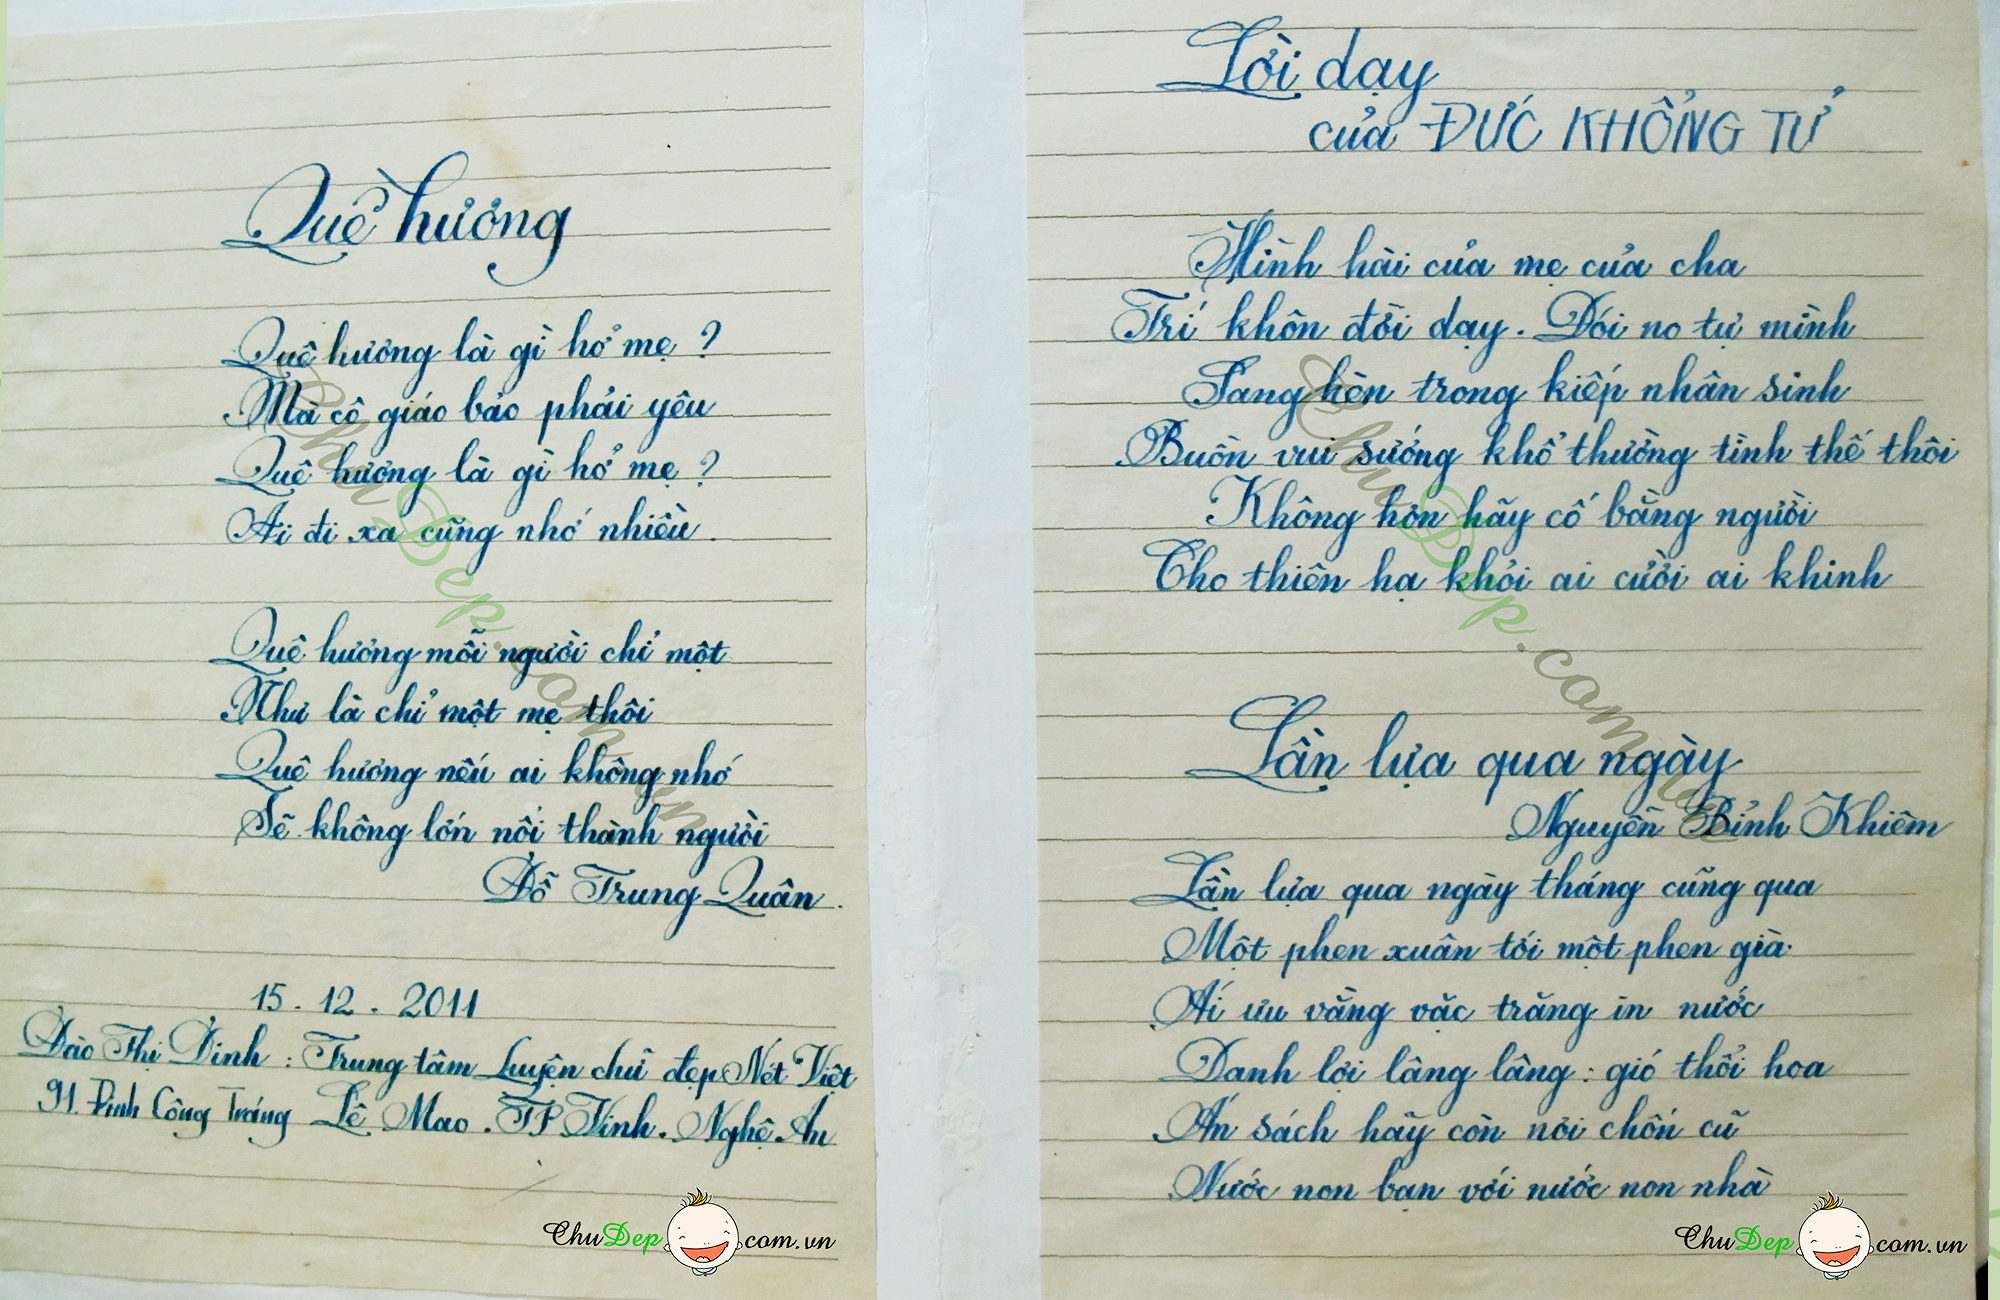 Quê hương
Quê hương là gì hở mẹ ?
Mà cô giáo bảo phải yêu
Quê hương là gì hở mẹ ?
Ai đi xa cũng nhớ nhiều .
Quê hương mỗi người chỉ một
Như là chỉ một mẹ thôi
Quê hương nếu ai không nhớ
Sẽ không lớn nổi thành người
Đỗ Trung Quân .
15 . 12 . 2011
Đào Thị Dinh : Trung tâm Luyện chữ đẹp Nét Việt
91. Đinh Công Tráng Lê Mao . TP Vinh . Nghệ An
ChuDep.com.vn
ChuDep com.vn
Lời dạy
của ĐỨC KHỔNG TỬ
Hình hài của mẹ của cha
Trí khôn đời dạy . Đói no tự mình
Sang hèn trong kiếp nhân sinh
Buồn vui sướng khổ thường tình thế thôi
Không hơn hãy cố bằng người
Cho thiên hạ khỏi ai cười ai khinh
Lần lựa qua ngày
Nguyễn Bỉnh Khiêm
Lần lựa qua ngày tháng cũng qua
Một phen xuân tới một phen già.
Ái ưu vằng vặc trăng in nước
Danh lợi lâng lâng : gió thổi hoa
Án sách hãy còn nơi chốn cũ
Nước non bạn với nước non nhà
ChuDep.com.vn
ChuDep com.vn